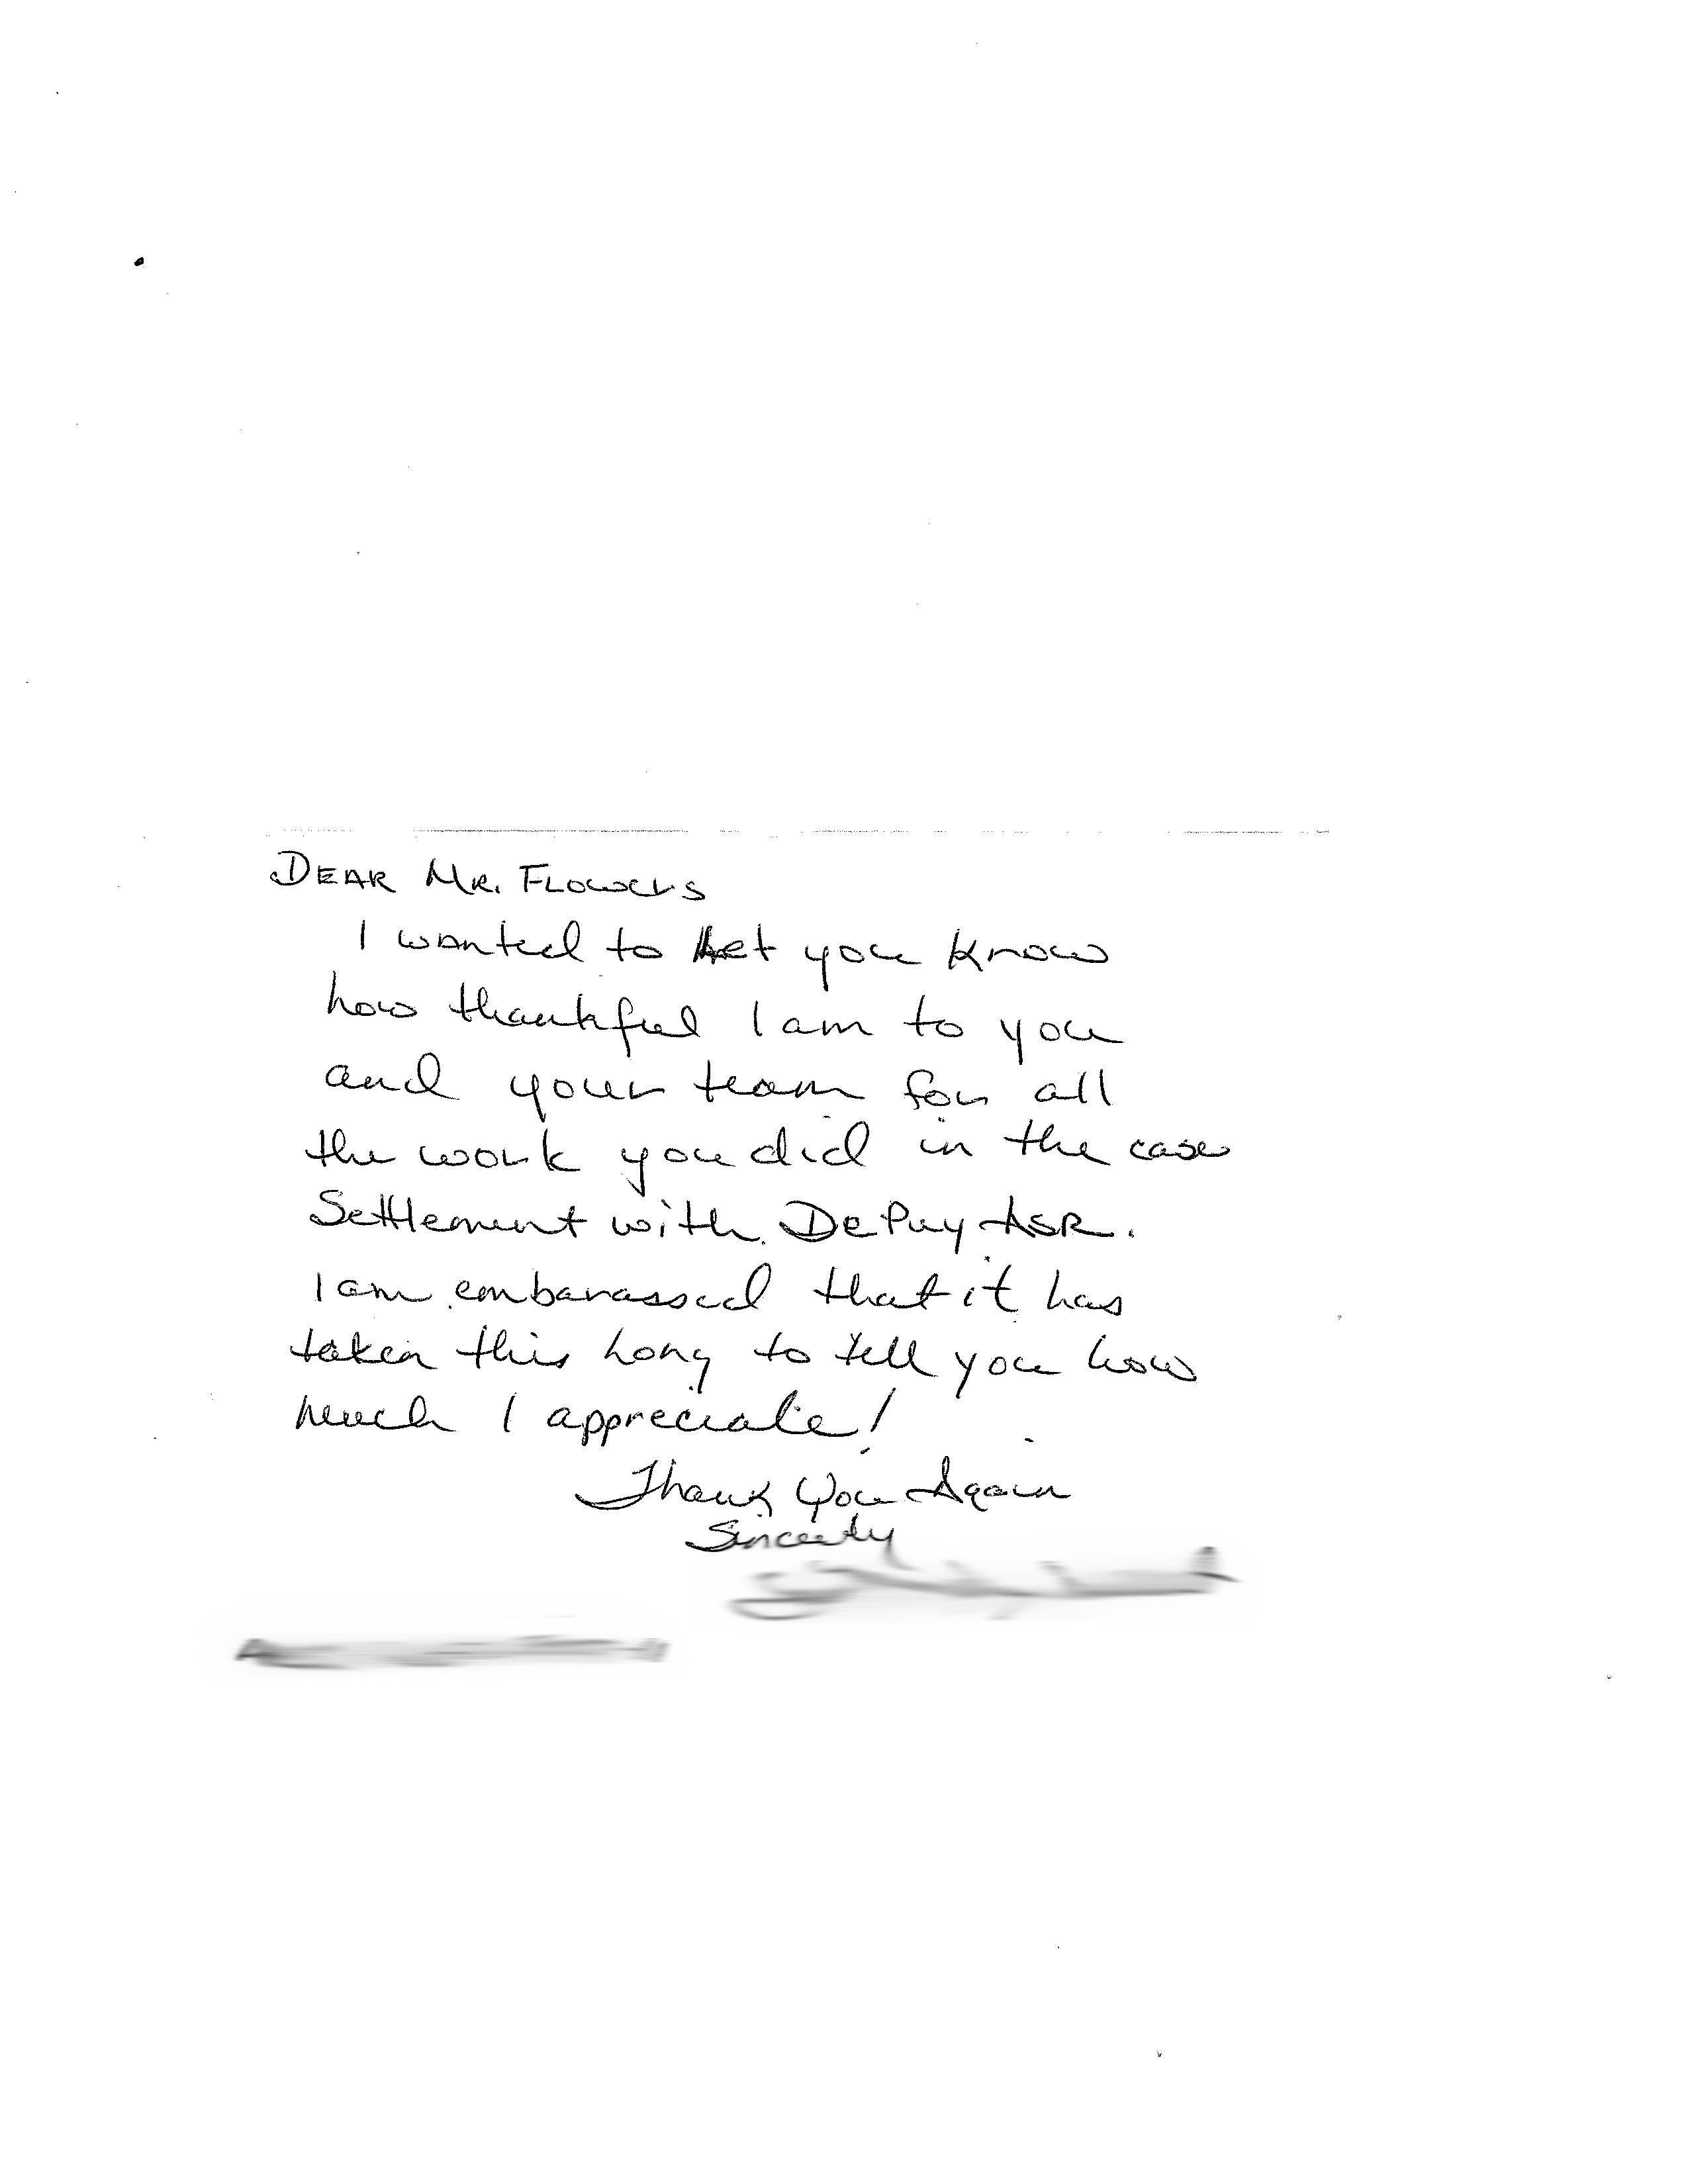 DEAR MR. FLOWERS
I wanted to let you know
how thankful I am to you
and your team for all
the work you did in the case
Settlement with DePuy ASR.
I am embarassed that it has
taken this long to tell you how
much I appreciate!
Thank You Again
Sincerely